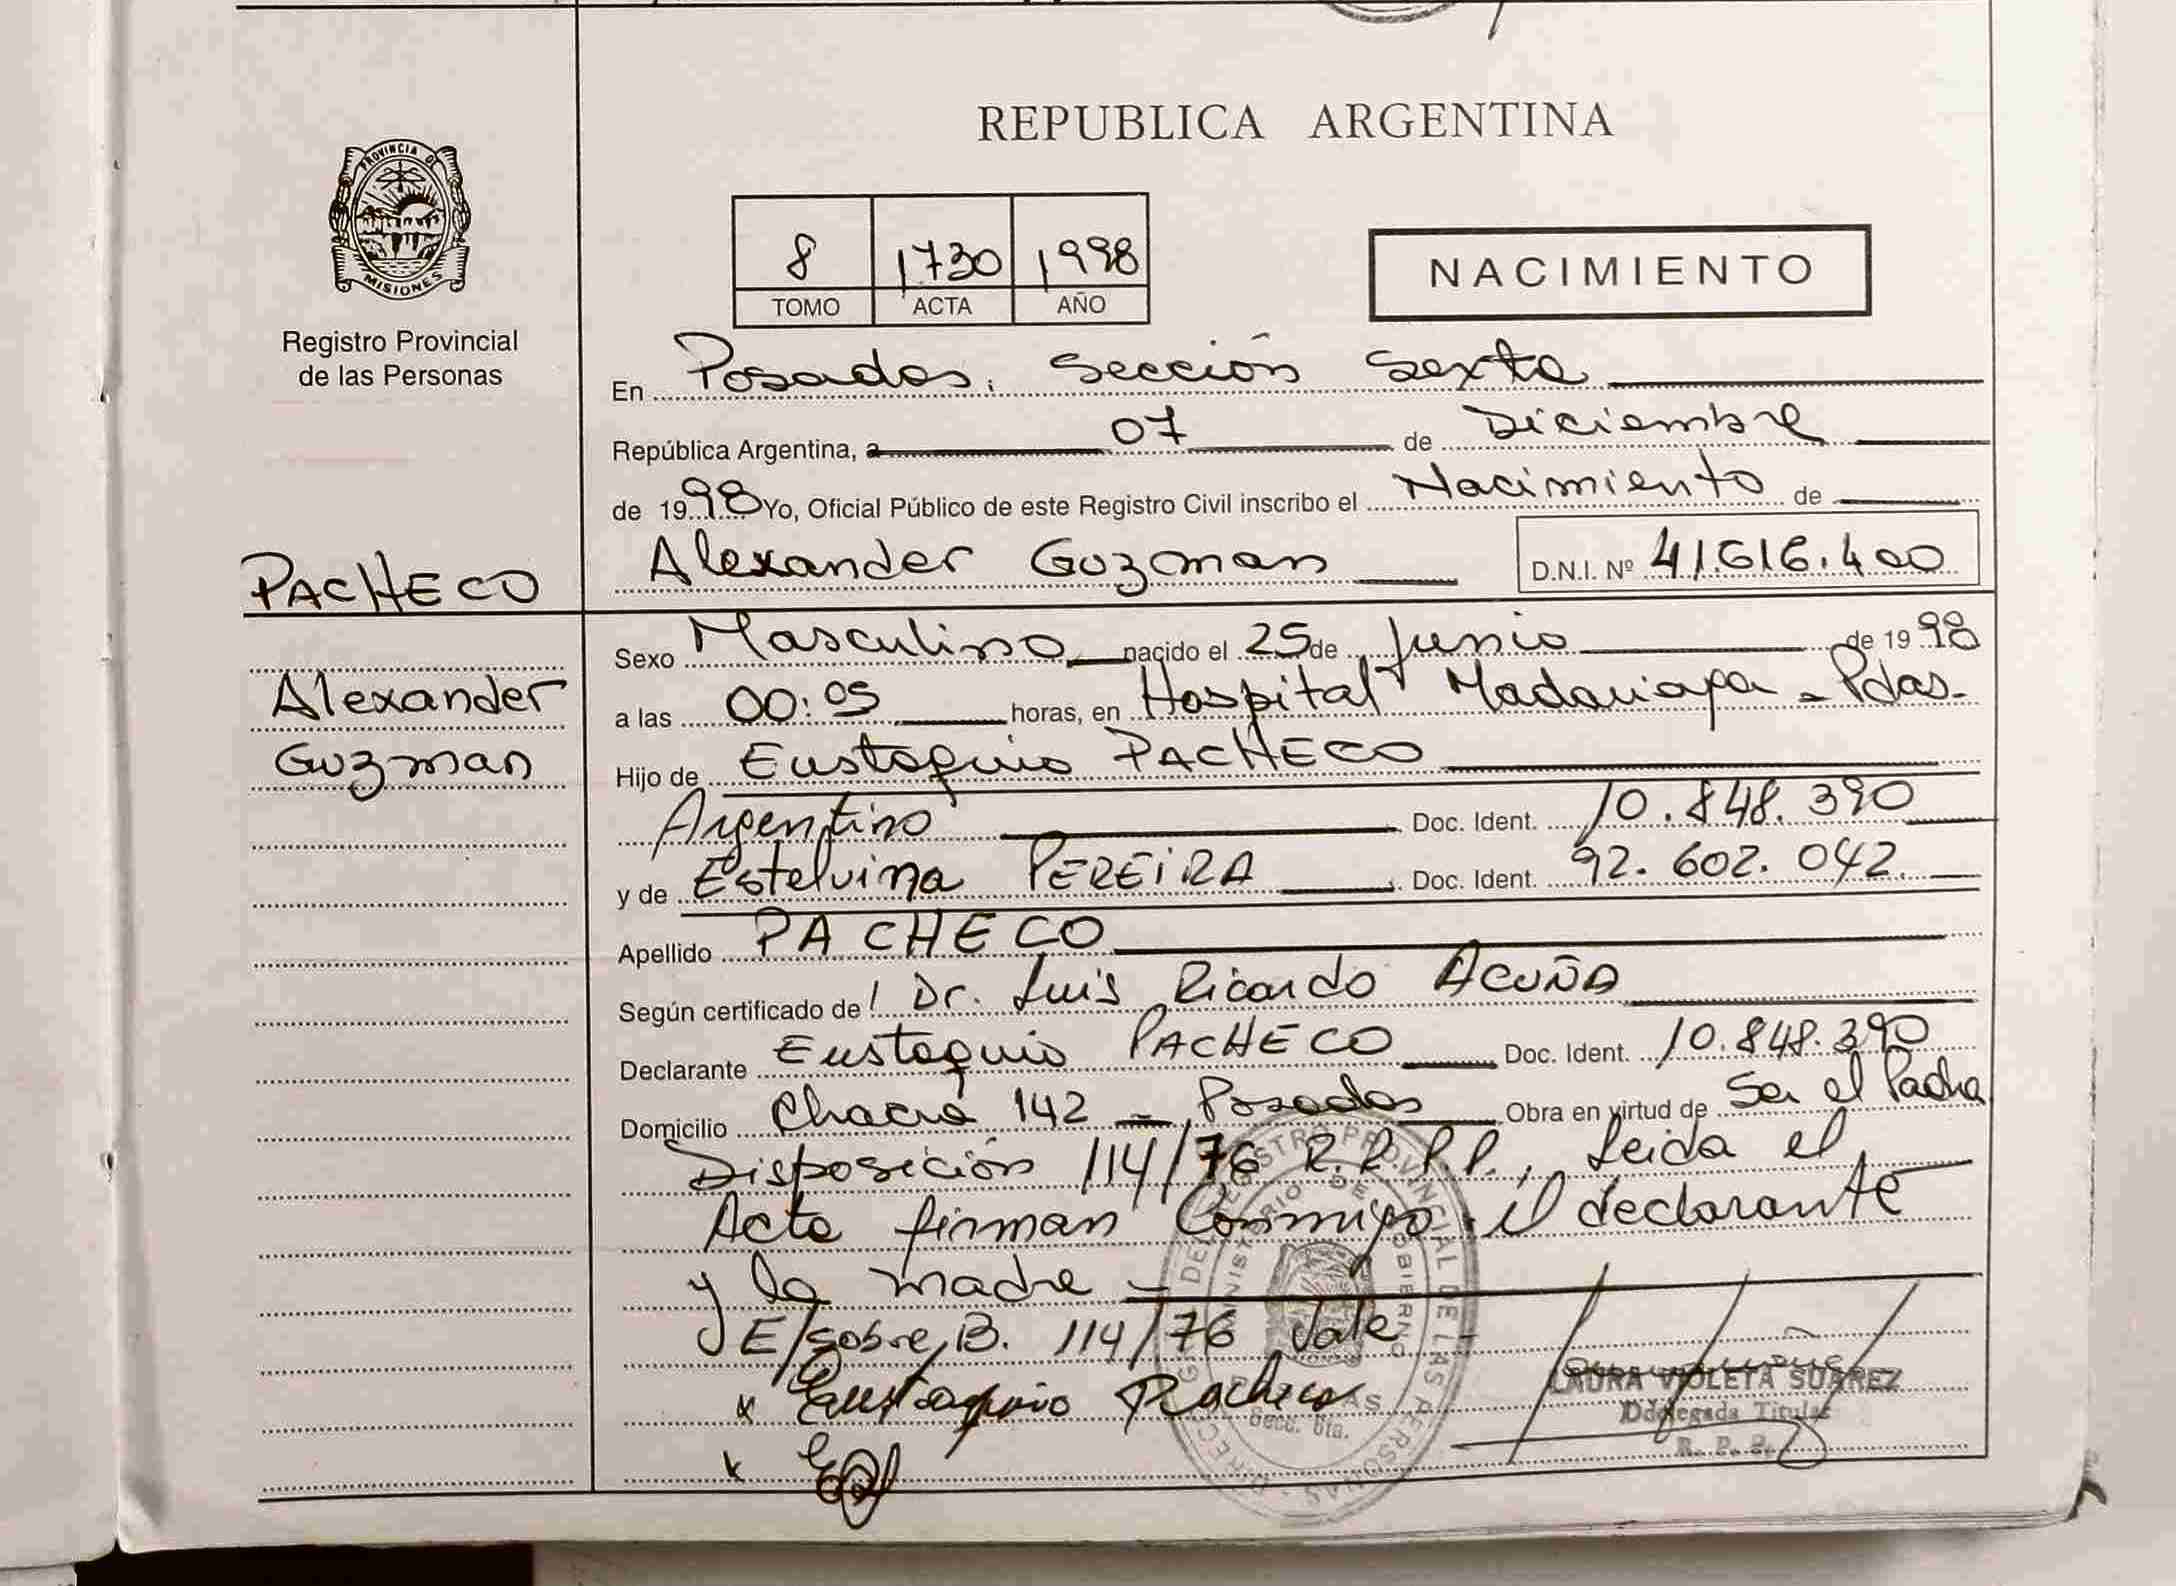 REPUBLICA ARGENTINA
PROVINCIA DE
MISIONES
Registro Provincial
de las Personas
8 1730 1998
TOMO ACTA AÑO
NACIMIENTO
En Posadas. Sección Sexta
República Argentina, a 07 de Diciembre
de 1998 Yo, Oficial Público de este Registro Civil inscribo el Nacimiento de
Alexander Guzman D.N.I. Nº 41.616.400
PACHECO
Alexander
Guzman
Sexo Masculino nacido el 25 de Junio de 1998
a las 00:05 horas, en Hospital Madariaga - Pdas.
Hijo de Eustaquio PACHECO
Argentino Doc. Ident. 10.848.390
y de Estelvina PEREIRA Doc. Ident. 92.602.042.
Apellido PACHECO
Según certificado de l Dr. Luis Ricardo ACUÑA
Declarante Eustaquio PACHECO Doc. Ident. 10.848.390
Domicilio Chacra 142 - Posadas Obra en virtud de Ser el Padre
Disposición 114/76 R.P.P., Leida el
Acta firman Conmigo, el declarante
y la madre -
E/sobre B. 114/76 Vale -
x Eustaquio Pacheco
x
LAURA VIOLETA SUAREZ
Delegada Titular
R. P. P.
DIRECC. G. DEL REGISTRO PROVINCIAL DE LAS PERSONAS
MINISTERIO DE GOBIERNO
Secc. 6ta.